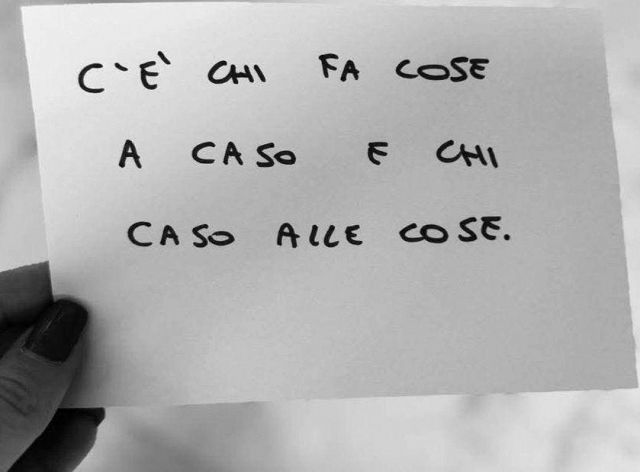 C'È CHI FA COSE
A CASO E CHI
CASO ALLE COSE.